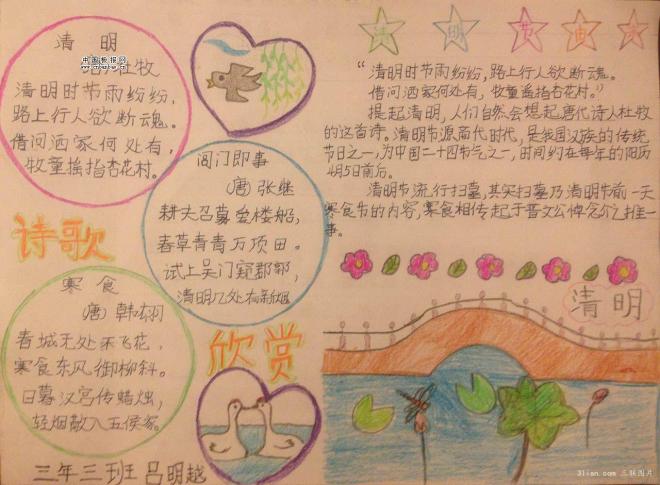 清明
中国教报网
唐 杜牧
清明时节雨纷纷，
路上行人欲断魂。
借问酒家何处有，
牧童摇指杏花村。
诗歌
阊门即事
唐 张继
耕夫召募逐楼船，
春草青青万项田。
试上吴门窥郡郭，
清明几处有新烟
寒食
唐 韩翃
春城无处不飞花，
寒食东风御柳斜。
日暮汉宫传蜡烛，
轻烟散入五侯家。
欣赏
三年三班 吕明越
清明节由来
“清明时节雨纷纷，路上行人欲断魂。
借问酒家何处有，牧童遥指杏花村。”
提起清明，人们自然会想起唐代诗人杜牧
的这首诗。清明节源商代时代，是我国汉族的传统
节日之一，为中国二十四节气之一，时间约在每年的阳历
4月5日前后。
清明节流行扫墓，其实扫墓乃清明节前一天
寒食节的内容，寒食相传起于晋文公悼念介推一
事。
清明
3lian.com 三联图片